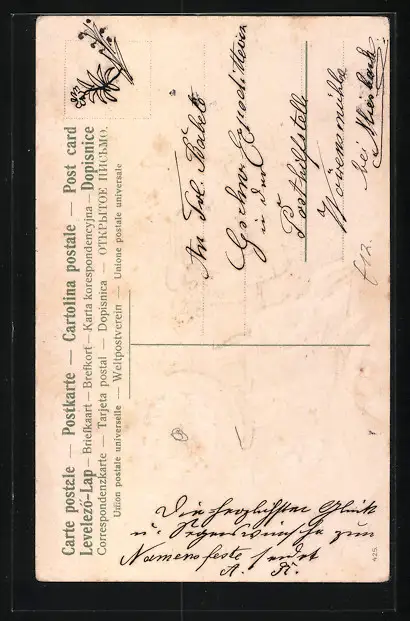 Carte postale — Postkarte — Cartolina postale — Post card
Levelező-Lap — Briefkaart — Brefkort — Karta korespondencyjna — Dopisnice
Correspondenzkarte — Tarjeta postal — Dopisnica — ОТКРЫТОЕ ПИСЬМО.
Union postale universelle — Weltpostverein — Unione postale universale
An Frl. Babett
in der
Posthilfstelle
bei Miesbach
Die herzlichsten Glück
u. Segenswünsche zum
Namensfeste sendet
A. R.
425